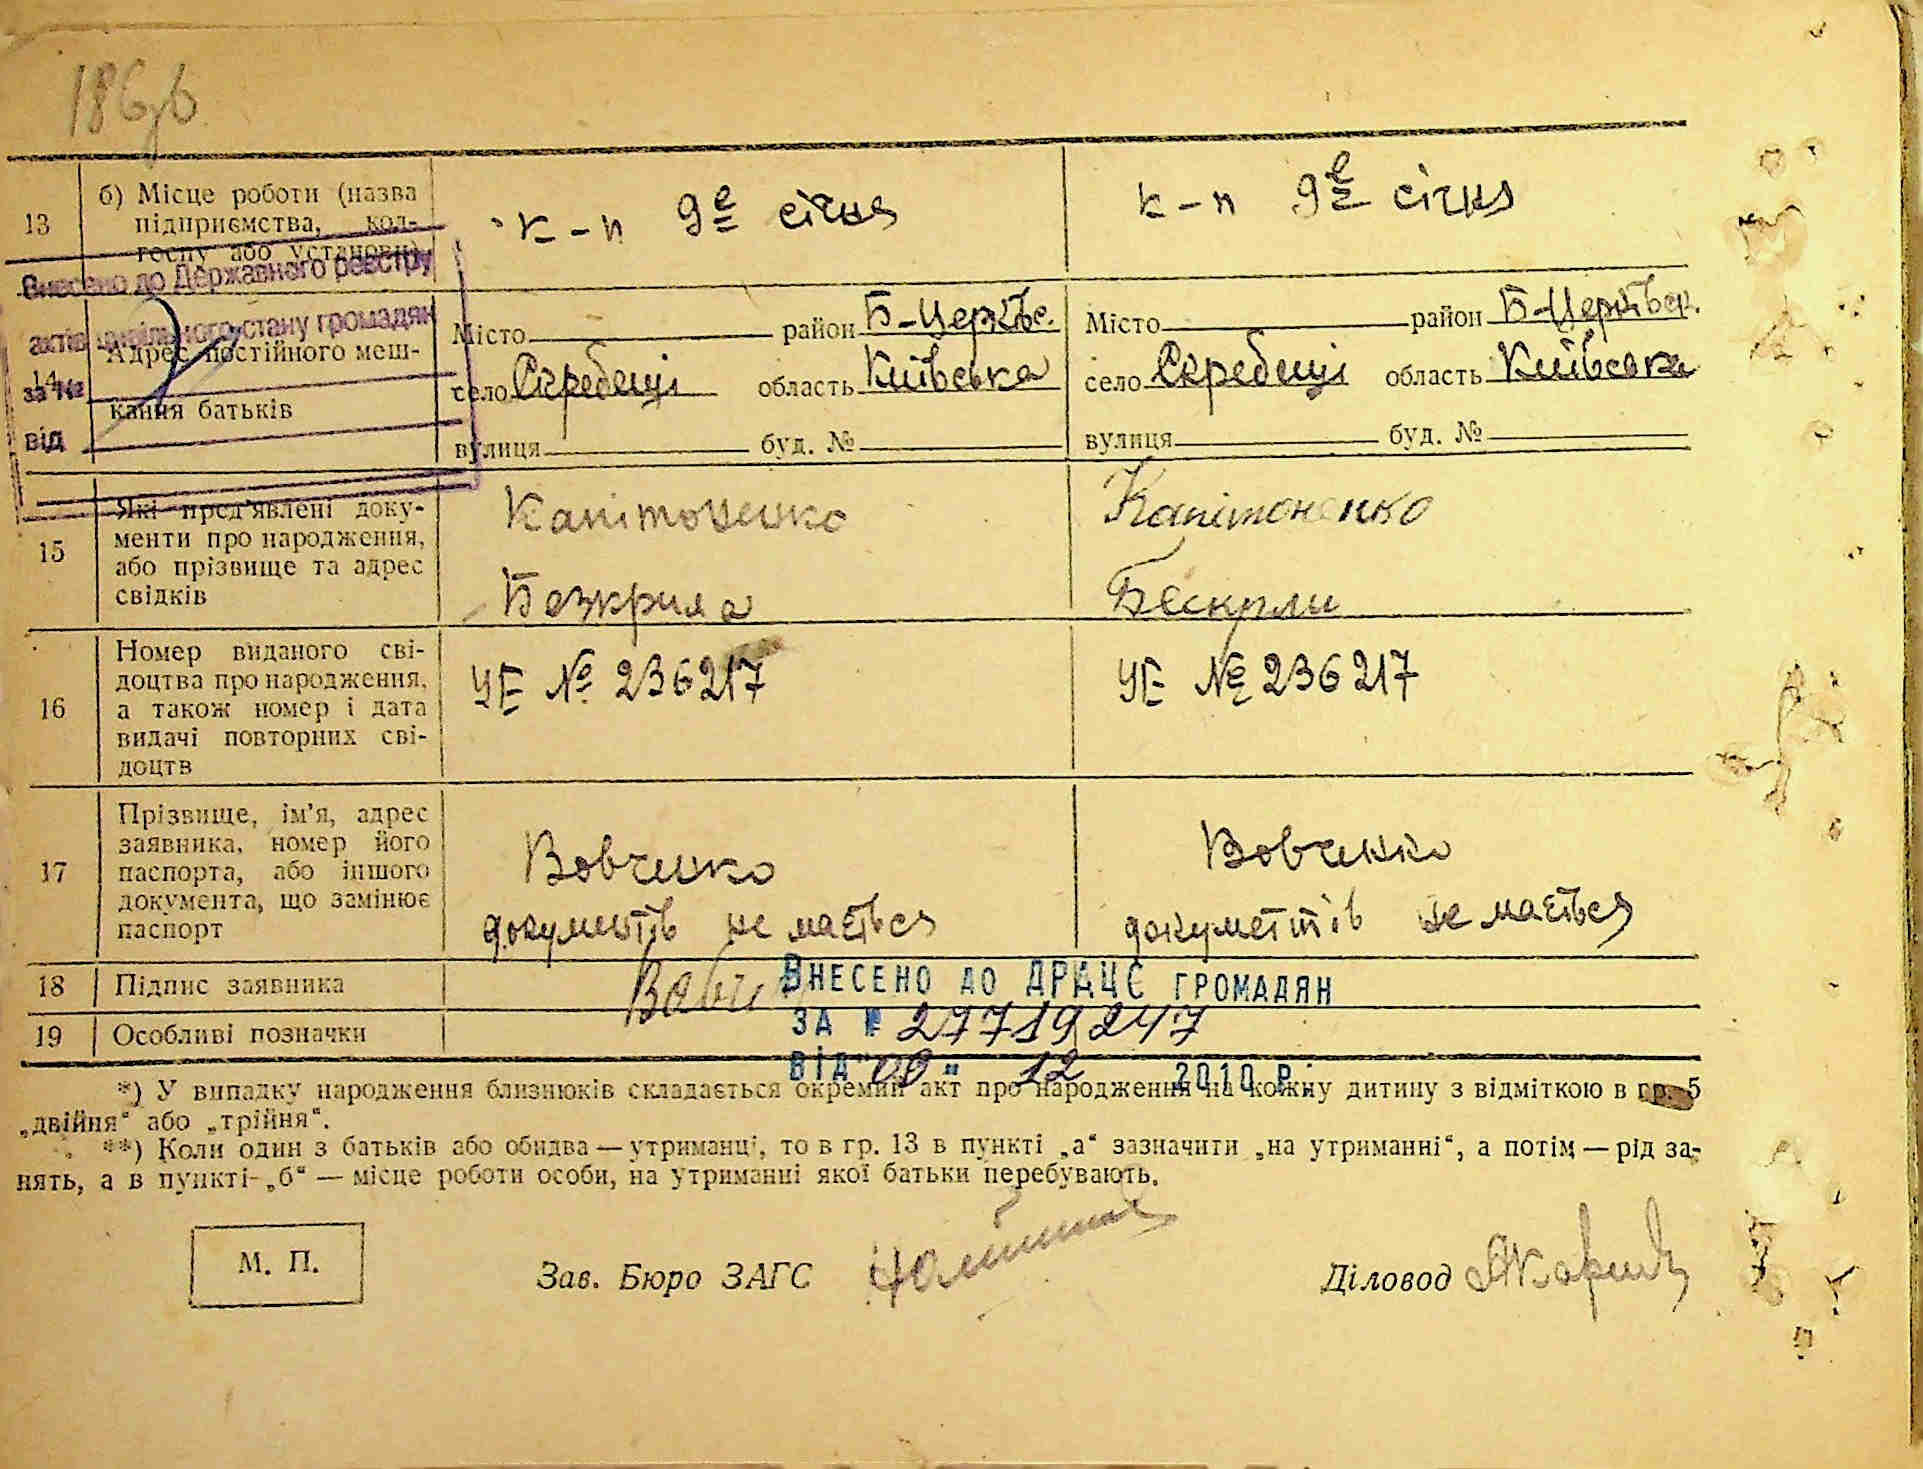 186зв
13 б) Місце роботи (назва
підприємства, кол-
госпу або установи)
к-п 9е січня
к-п 9е січня
Внесено до Державного реєстру
актів цивільного стану громадян
за №
від
14 Адрес постійного меш-
кання батьків
Місто район Б-Церківс.
село Скребеші область Київська
вулиця буд. №
Місто район Б-Церківськ.
село Скребеші область Київська
вулиця буд. №
15 Які пред'явлені доку-
менти про народження,
або прізвище та адрес
свідків
Капітоненко
Безкрила
Капітоненко
Бескрли
16 Номер виданого сві-
доцтва про народження,
а також номер і дата
видачі повторних сві-
доцтв
УЕ № 236217
УЕ № 236217
17 Прізвище, ім'я, адрес
заявника, номер його
паспорта, або іншого
документа, що замінює
паспорт
Вовченко
документів не мається
Вовченко
документів не мається
18 Підпис заявника
19 Особливі позначки
Внесено до ДРАЦС громадян
за № 27719247
від "09" 12 2010 р.
*) У випадку народження близнюків складається окремий акт про народження на кожну дитину з відміткою в гр. 5
„двійня“ або „трійня“.
**) Коли один з батьків або обидва — утриманці, то в гр. 13 в пункті „а“ зазначити „на утриманні“, а потім — рід за-
нять, а в пункті „б“ — місце роботи особи, на утриманні якої батьки перебувають.
М. П.
Зав. Бюро ЗАГС
Діловод